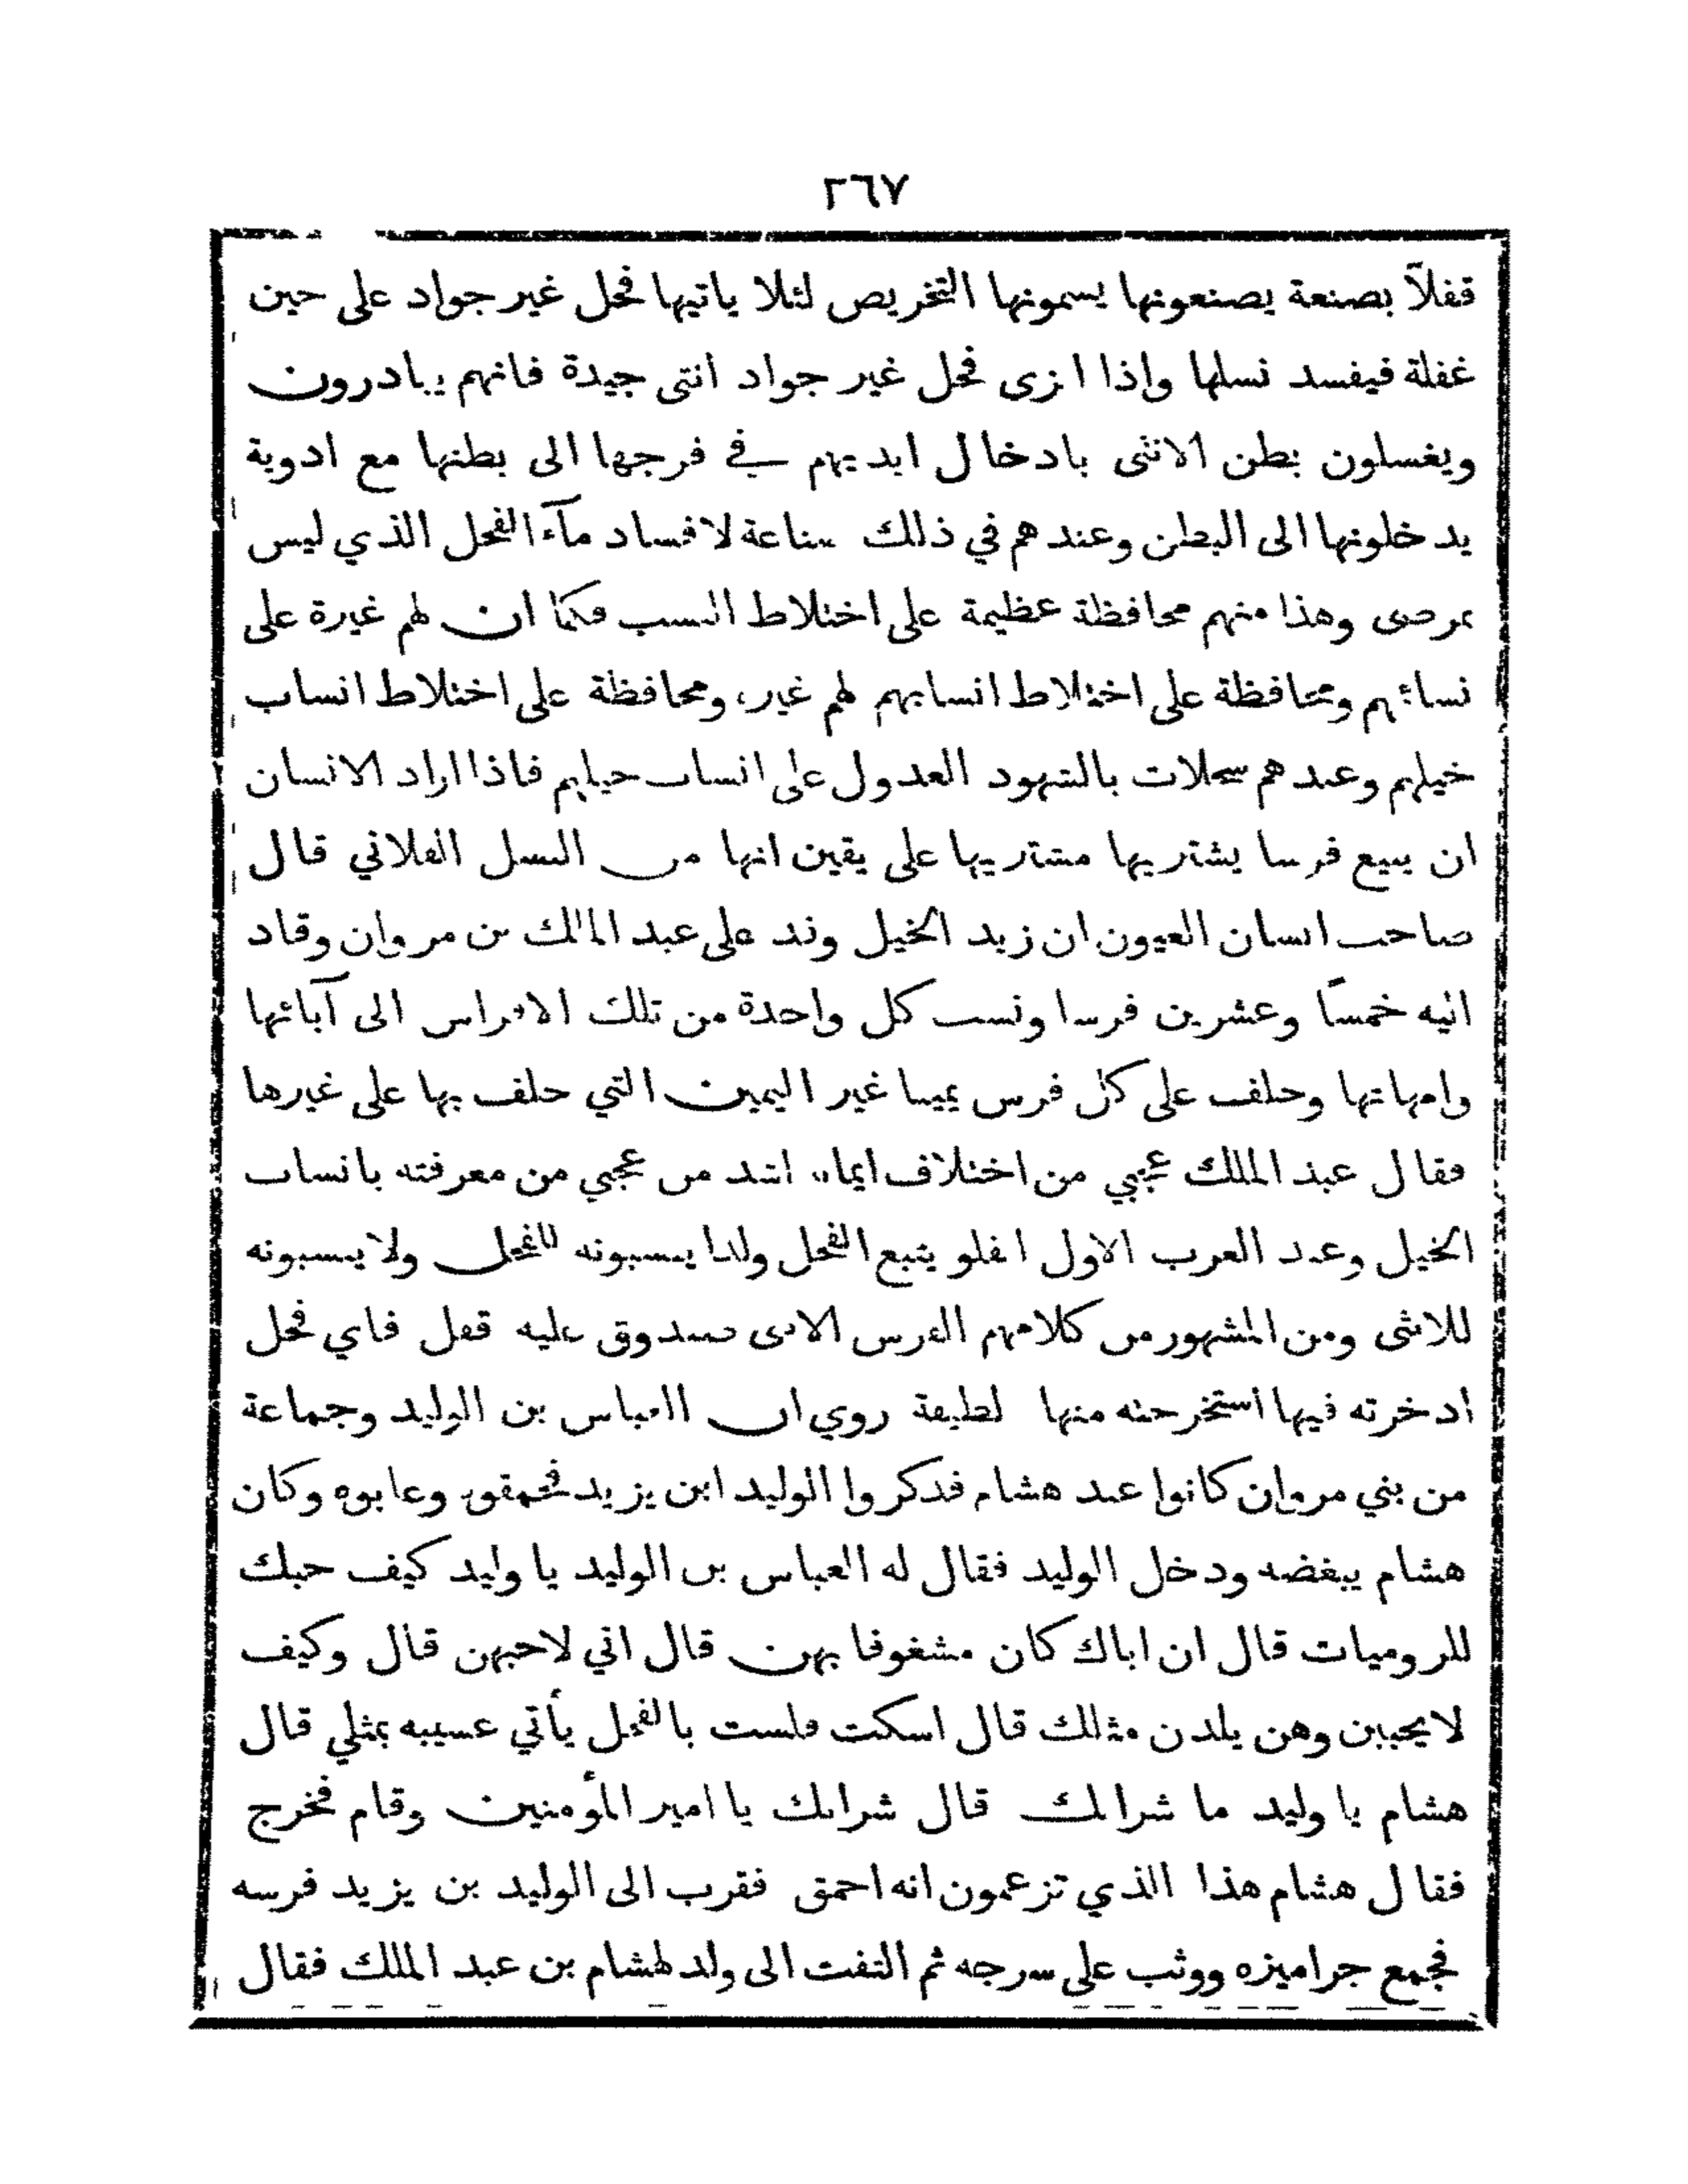 ٢٦٧
قفلاً بصنعة يصنعونها يسمونها التخريص لئلا ياتيها فحل غير جواد على حين
غفلة فيفسد نسلها واذا انزى فحل غير جواد انثى جيدة فانهم يبادرون
ويغسلون بطن الانثى بادخال ايديهم في فرجها الى بطنها مع ادوية
يدخلونها الى البطن وعندهم في ذلك صناعة لافساد مآء الفحل الذي ليس
بمرضى وهذا منهم محافظة عظيمة على اختلاط النسب فكما ان لهم غيرة على
نسائهم ومحافظة على اختلاط انسابهم لهم غيرة ومحافظة على اختلاط انساب
خيلهم وعندهم سجلات بالشهود العدول على انساب خيلهم فاذا اراد الانسان
ان يبيع فرسا يشتريها مشتريها على يقين انها من النسل الفلاني قال
صاحب انسان العيون ان زيد الخيل وفد على عبد الملك بن مروان وقاد
اليه خمسًا وعشرين فرسا ونسب كل واحدة من تلك الافراس الى آبائها
وامهاتها وحلف على كل فرس يمينا غير اليمين التي حلف بها على غيرها
فقال عبد الملك عجبي من اختلاف ايمانه اشد من عجبي من معرفته بانساب
الخيل وعند العرب الاول الفلو يتبع الفحل ولذا ينسبونه للفحل ولا ينسبونه
للانثى ومن المشهور من كلامهم الفرس الانثى صندوق عليه قفل فاي فحل
ادخرته فيها استخرجته منها لطيفة روي ان العباس بن الوليد وجماعة
من بني مروان كانوا عند هشام فذكروا الوليد ابن يزيد فحمقوه وعابوه وكان
هشام يبغضه ودخل الوليد فقال له العباس بن الوليد يا وليد كيف حبك
للروميات قال ان اباك كان مشغوفا بهن قال اني لاحبهن قال وكيف
لا يحببن وهن يلدن مثلك قال اسكت فلست بالفحل يأتي عسيبه بمثلي قال
هشام يا وليد ما شرابك قال شرابك يا امير المؤمنين وقام فخرج
فقال هشام هذا الذي تزعمون انه احمق فقرب الى الوليد بن يزيد فرسه
فجمع جراميزه ووثب على سرجه ثم التفت الى ولد لهشام بن عبد الملك فقال